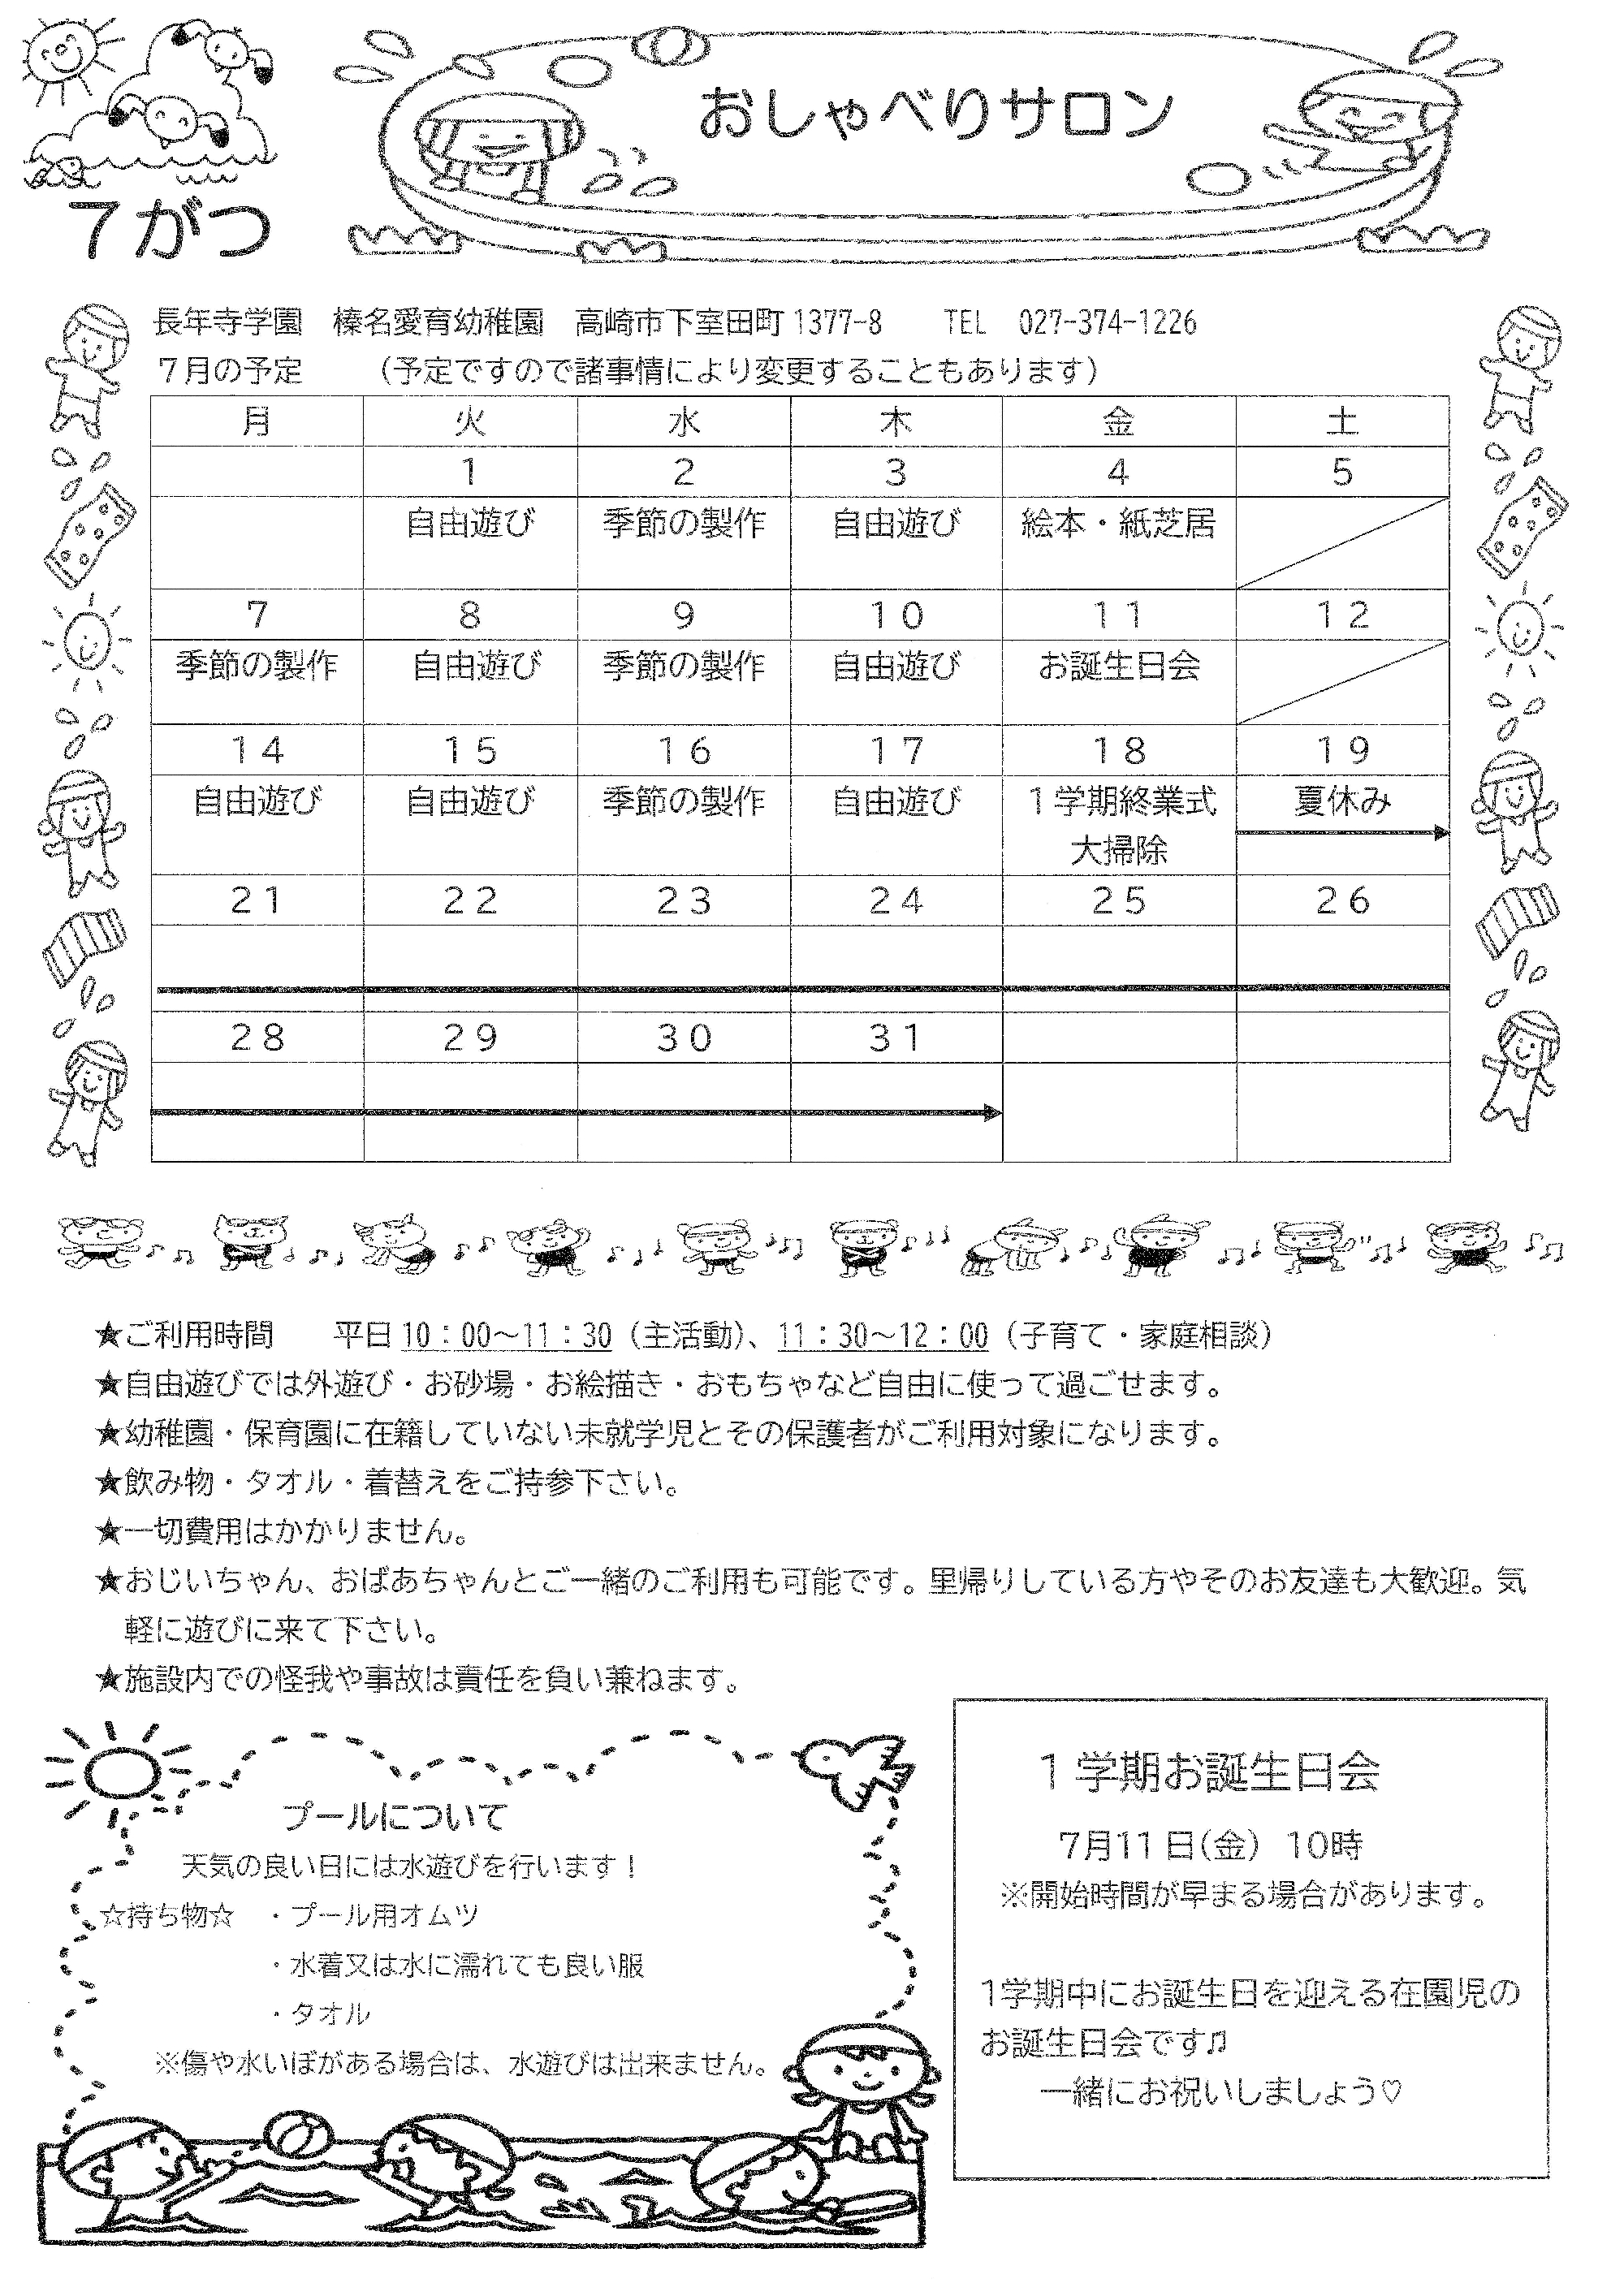 おしゃべりサロン
７がつ
長年寺学園　榛名愛育幼稚園　高崎市下室田町 1377-8　　TEL　027-374-1226
７月の予定　　（予定ですので諸事情により変更することもあります）
月　火　水　木　金　土
1　2　3　4　5
自由遊び　季節の製作　自由遊び　絵本・紙芝居
7　8　9　10　11　12
季節の製作　自由遊び　季節の製作　自由遊び　お誕生日会
14　15　16　17　18　19
自由遊び　自由遊び　季節の製作　自由遊び　１学期終業式　夏休み
大掃除
21　22　23　24　25　26
28　29　30　31
★ご利用時間　　平日 10：00～11：30（主活動）、11：30～12：00（子育て・家庭相談）
★自由遊びでは外遊び・お砂場・お絵描き・おもちゃなど自由に使って過ごせます。
★幼稚園・保育園に在籍していない未就学児とその保護者がご利用対象になります。
★飲み物・タオル・着替えをご持参下さい。
★一切費用はかかりません。
★おじいちゃん、おばあちゃんとご一緒のご利用も可能です。里帰りしている方やそのお友達も大歓迎。気
軽に遊びに来て下さい。
★施設内での怪我や事故は責任を負い兼ねます。
プールについて
天気の良い日には水遊びを行います！
☆持ち物☆　・プール用オムツ
・水着又は水に濡れても良い服
・タオル
※傷や水いぼがある場合は、水遊びは出来ません。
１学期お誕生日会
7月11日(金)　10時
※開始時間が早まる場合があります。
1学期中にお誕生日を迎える在園児の
お誕生日会です♫
一緒にお祝いしましょう♡